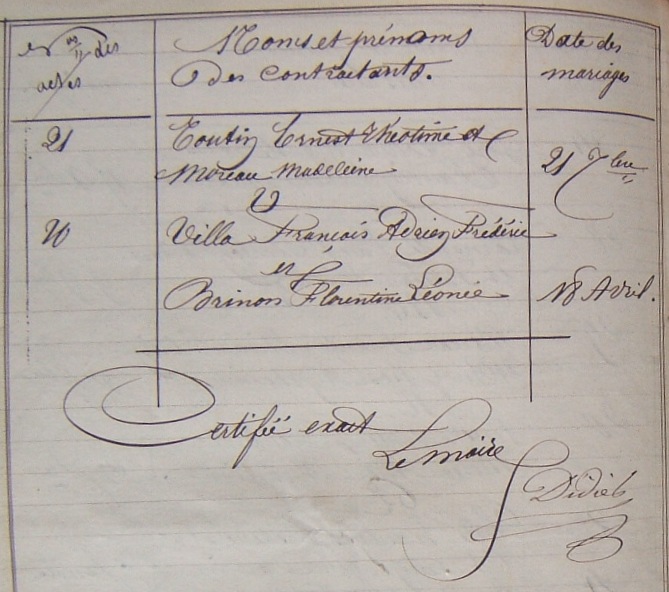 nos des Noms et prénoms Date des
actes des contractants. mariages
21 Toutin Ernest Théotime et
Moreau Madeleine 21 7bre
V
Villa François Adrien Frédéric
et
Brinon Florentine Léonie 18 Avril.
Certifié exact
Le maire
Didier